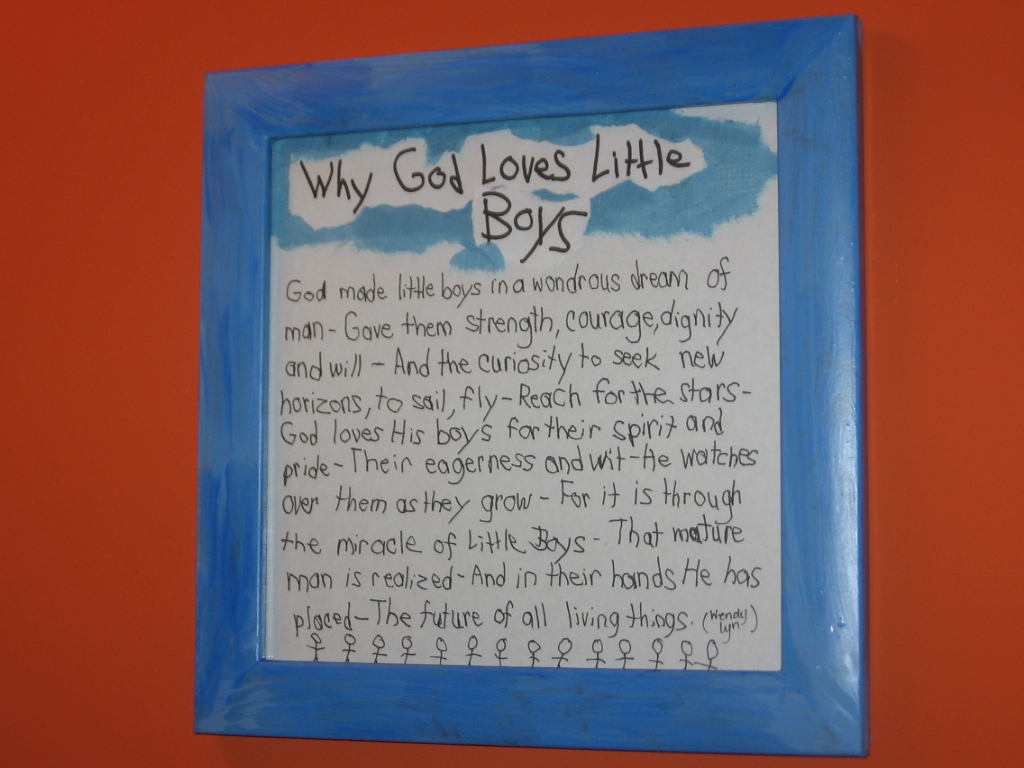 Why God Loves Little
Boys
God made little boys in a wondrous dream of
man- Gave them strength, courage, dignity
and will - And the curiosity to seek new
horizons, to sail, fly-Reach for the stars-
God loves His boys for their spirit and
pride-Their eagerness and wit-He watches
over them as they grow - For it is through
the miracle of Little Boys - That mature
man is realized-And in their hands He has
placed-The future of all living things. (Wendy
Lyn)